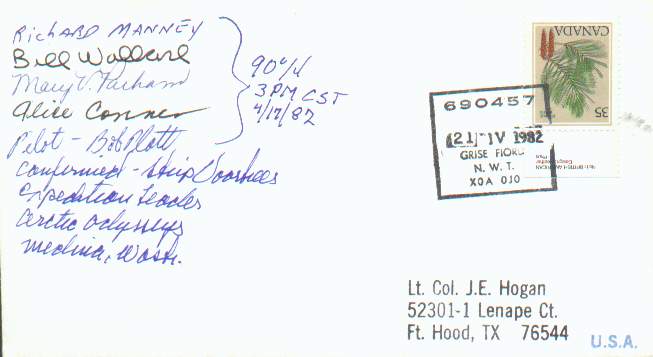 Richard Manney
Bill Wallace
Mary V. Parham
Alice Conner
Pilot - Bob Plott
Confirmed - Skip Voorhees
Expedition Leader
Arctic Odysseys
Medina, Wash.
90°N
3 PM CST
4/17/82
CANADA
35
690457
21 IV 1982
GRISE FIORD
N. W. T.
X0A 0J0
Lt. Col. J.E. Hogan
52301-1 Lenape Ct.
Ft. Hood, TX 76544
U.S.A.